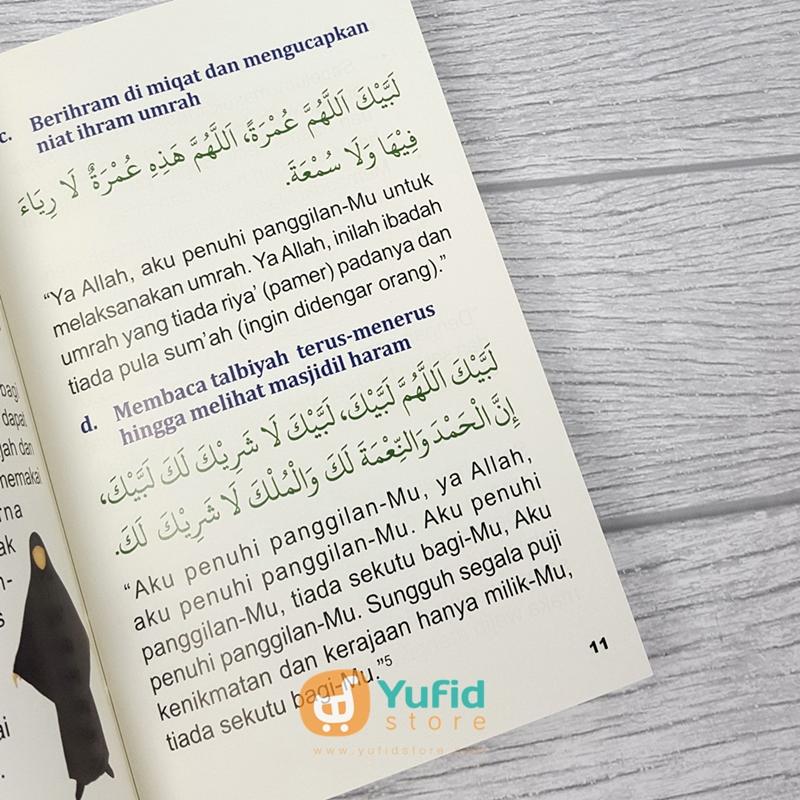 c. Berihram di miqat dan mengucapkan
niat ihram umrah
لَبَّيْكَ اَللَّهُمَّ عُمْرَةً، اَللَّهُمَّ هَذِهِ عُمْرَةٌ لَا رِيَاءَ
فِيْهَا وَلَا سُمْعَةَ.
“Ya Allah, aku penuhi panggilan-Mu untuk
melaksanakan umrah. Ya Allah, inilah ibadah
umrah yang tiada riya’ (pamer) padanya dan
tiada pula sum’ah (ingin didengar orang).”
d. Membaca talbiyah terus-menerus
hingga melihat masjidil haram
لَبَّيْكَ اَللَّهُمَّ لَبَّيْكَ، لَبَّيْكَ لَا شَرِيْكَ لَكَ لَبَّيْكَ،
إِنَّ الْحَمْدَ وَالنِّعْمَةَ لَكَ وَالْمُلْكَ لَا شَرِيْكَ لَكَ.
“Aku penuhi panggilan-Mu, ya Allah,
aku penuhi panggilan-Mu. Aku penuhi
panggilan-Mu, tiada sekutu bagi-Mu, Aku
penuhi panggilan-Mu. Sungguh segala puji
kenikmatan dan kerajaan hanya milik-Mu,
tiada sekutu bagi-Mu.”5
11
Yufid
store
www.yufidstore.com